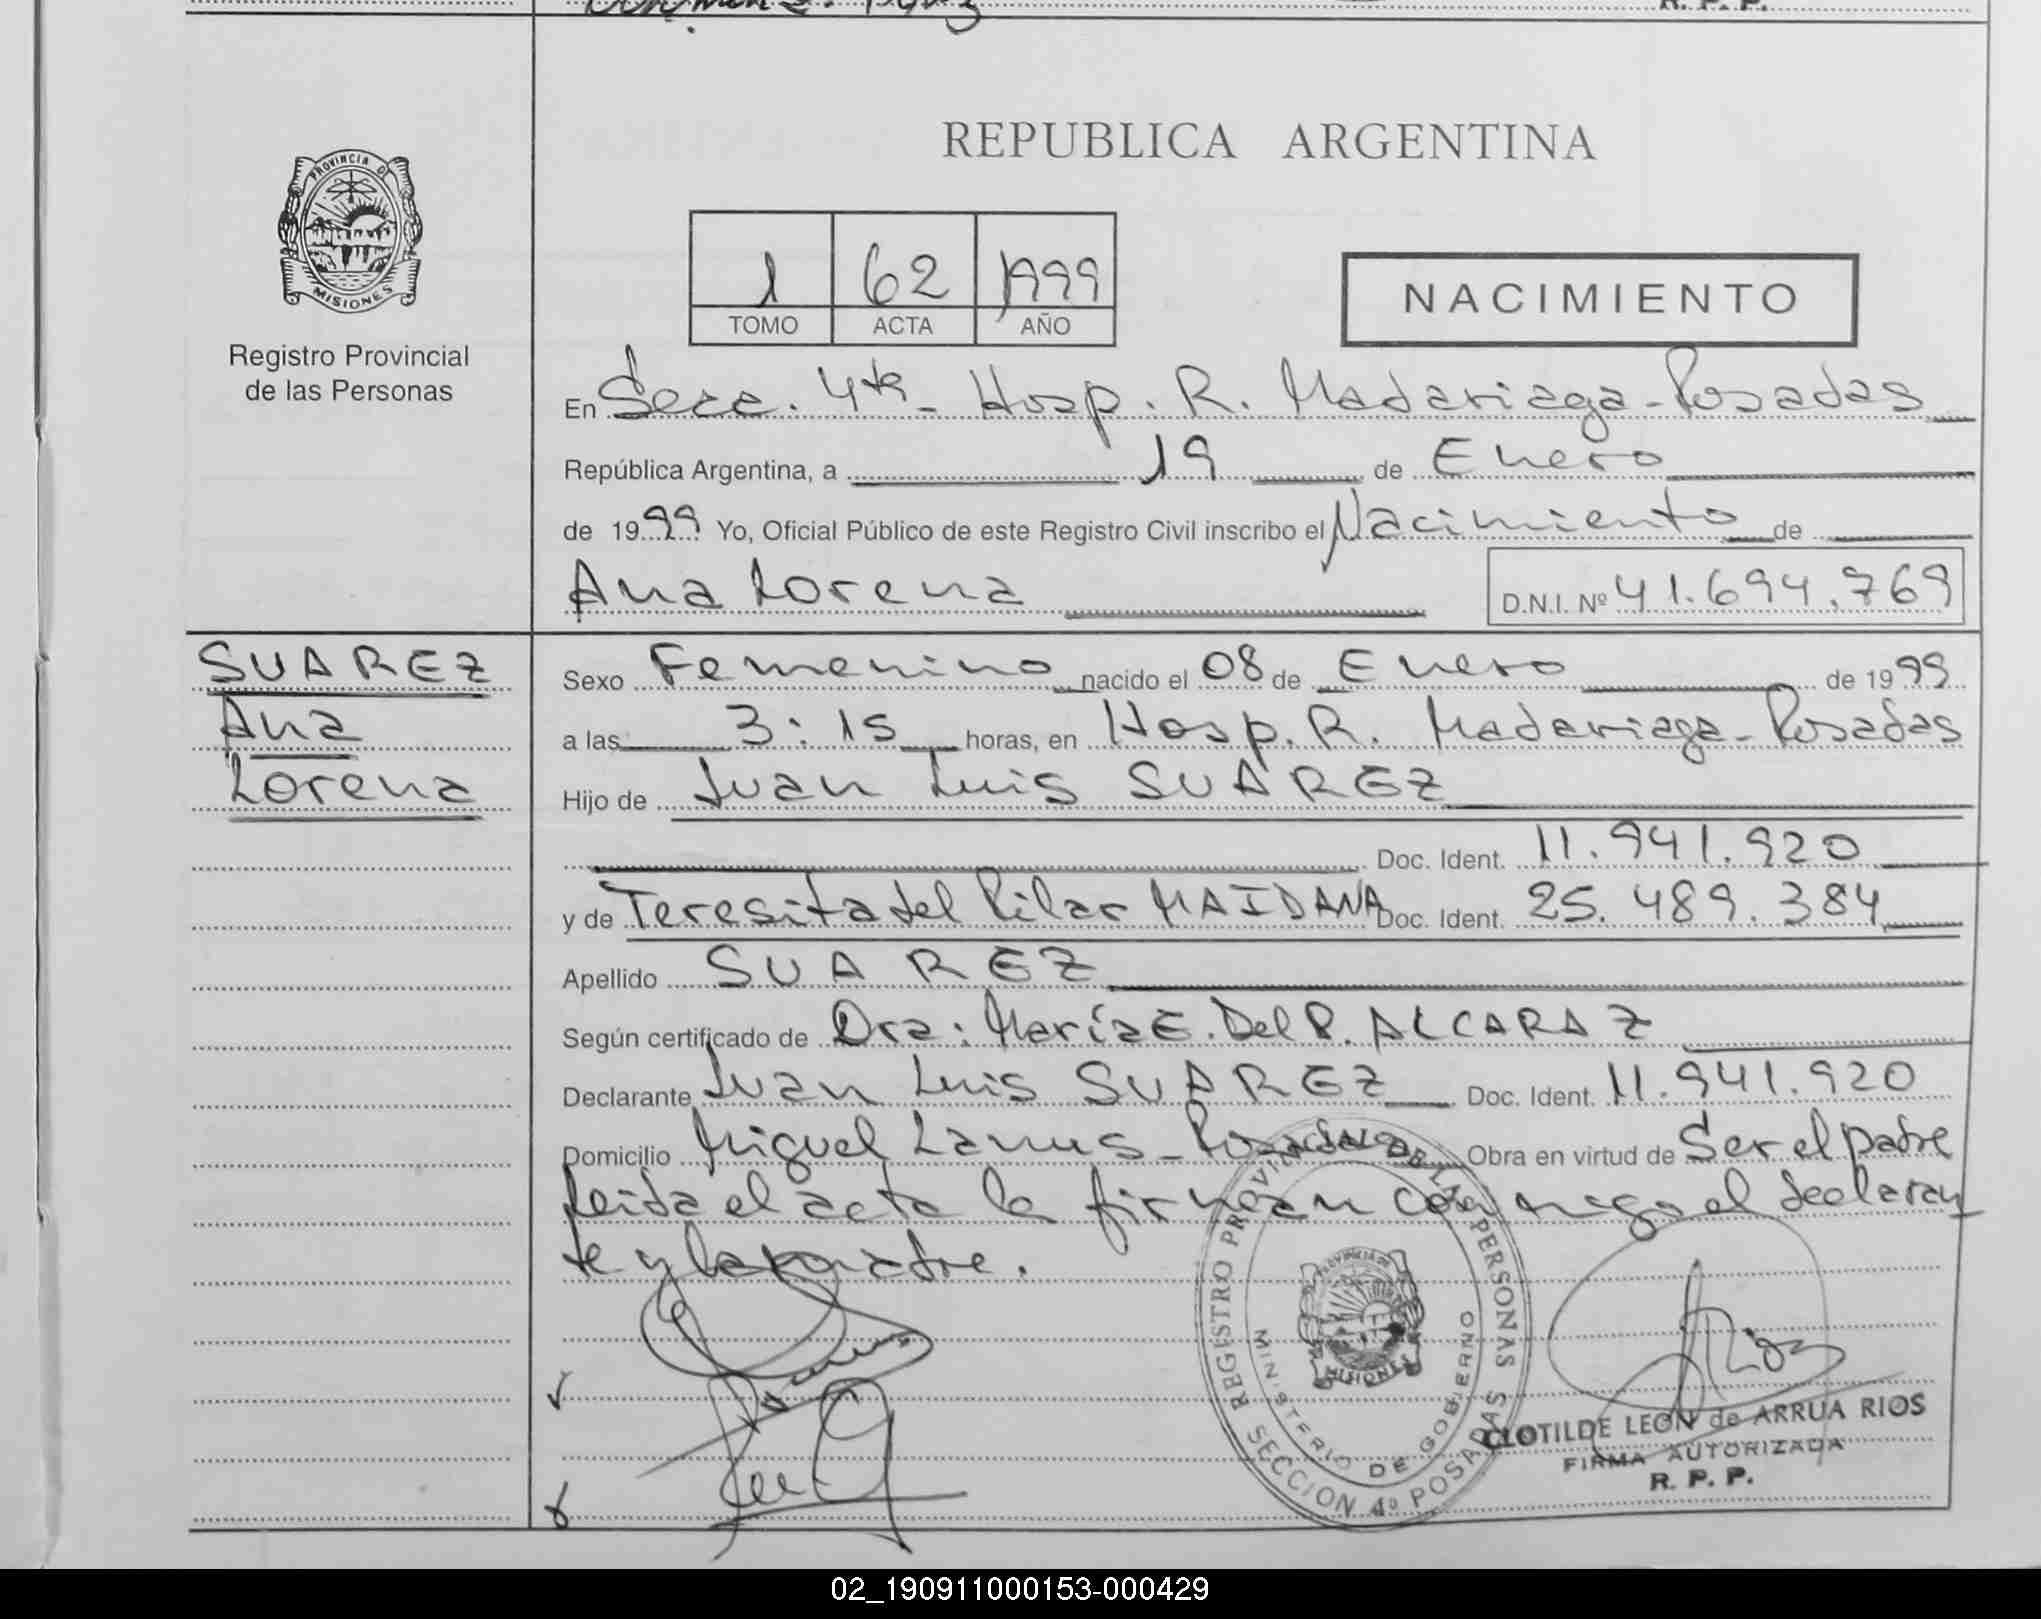 R. P. P.
REPUBLICA ARGENTINA
PROVINCIA DE
MISIONES
Registro Provincial
de las Personas
1 62 1999
TOMO ACTA AÑO
NACIMIENTO
En Secc. 4ta- Hosp. R. Madariaga-Posadas
República Argentina, a 19 de Enero
de 1999 Yo, Oficial Público de este Registro Civil inscribo el Nacimiento de
Ana Lorena D.N.I. Nº 41.694.769
SUAREZ
Ana
Lorena
Sexo Femenino nacido el 08 de Enero de 1999
a las 3:15 horas, en Hosp. R. Madariaga-Posadas
Hijo de Juan Luis SUAREZ
Doc. Ident. 11.941.920
y de Teresita del Pilar MAIDANA Doc. Ident. 25.489.384
Apellido SUAREZ
Según certificado de Dra: María E. Del P. ALCARAZ
Declarante Juan Luis SUAREZ Doc. Ident. 11.941.920
Domicilio Miguel Lanus-Posadas Obra en virtud de Ser el padre
leida el acta la firman conmigo el declaran
te y la madre.
REGISTRO PROVINCIAL DE LAS PERSONAS
MINISTERIO DE GOBIERNO
SECCION 4º POSADAS
PROVINCIA DE
MISIONES
Rios
CLOTILDE LEON de ARRUA RIOS
FIRMA AUTORIZADA
R. P. P.
02_190911000153-000429